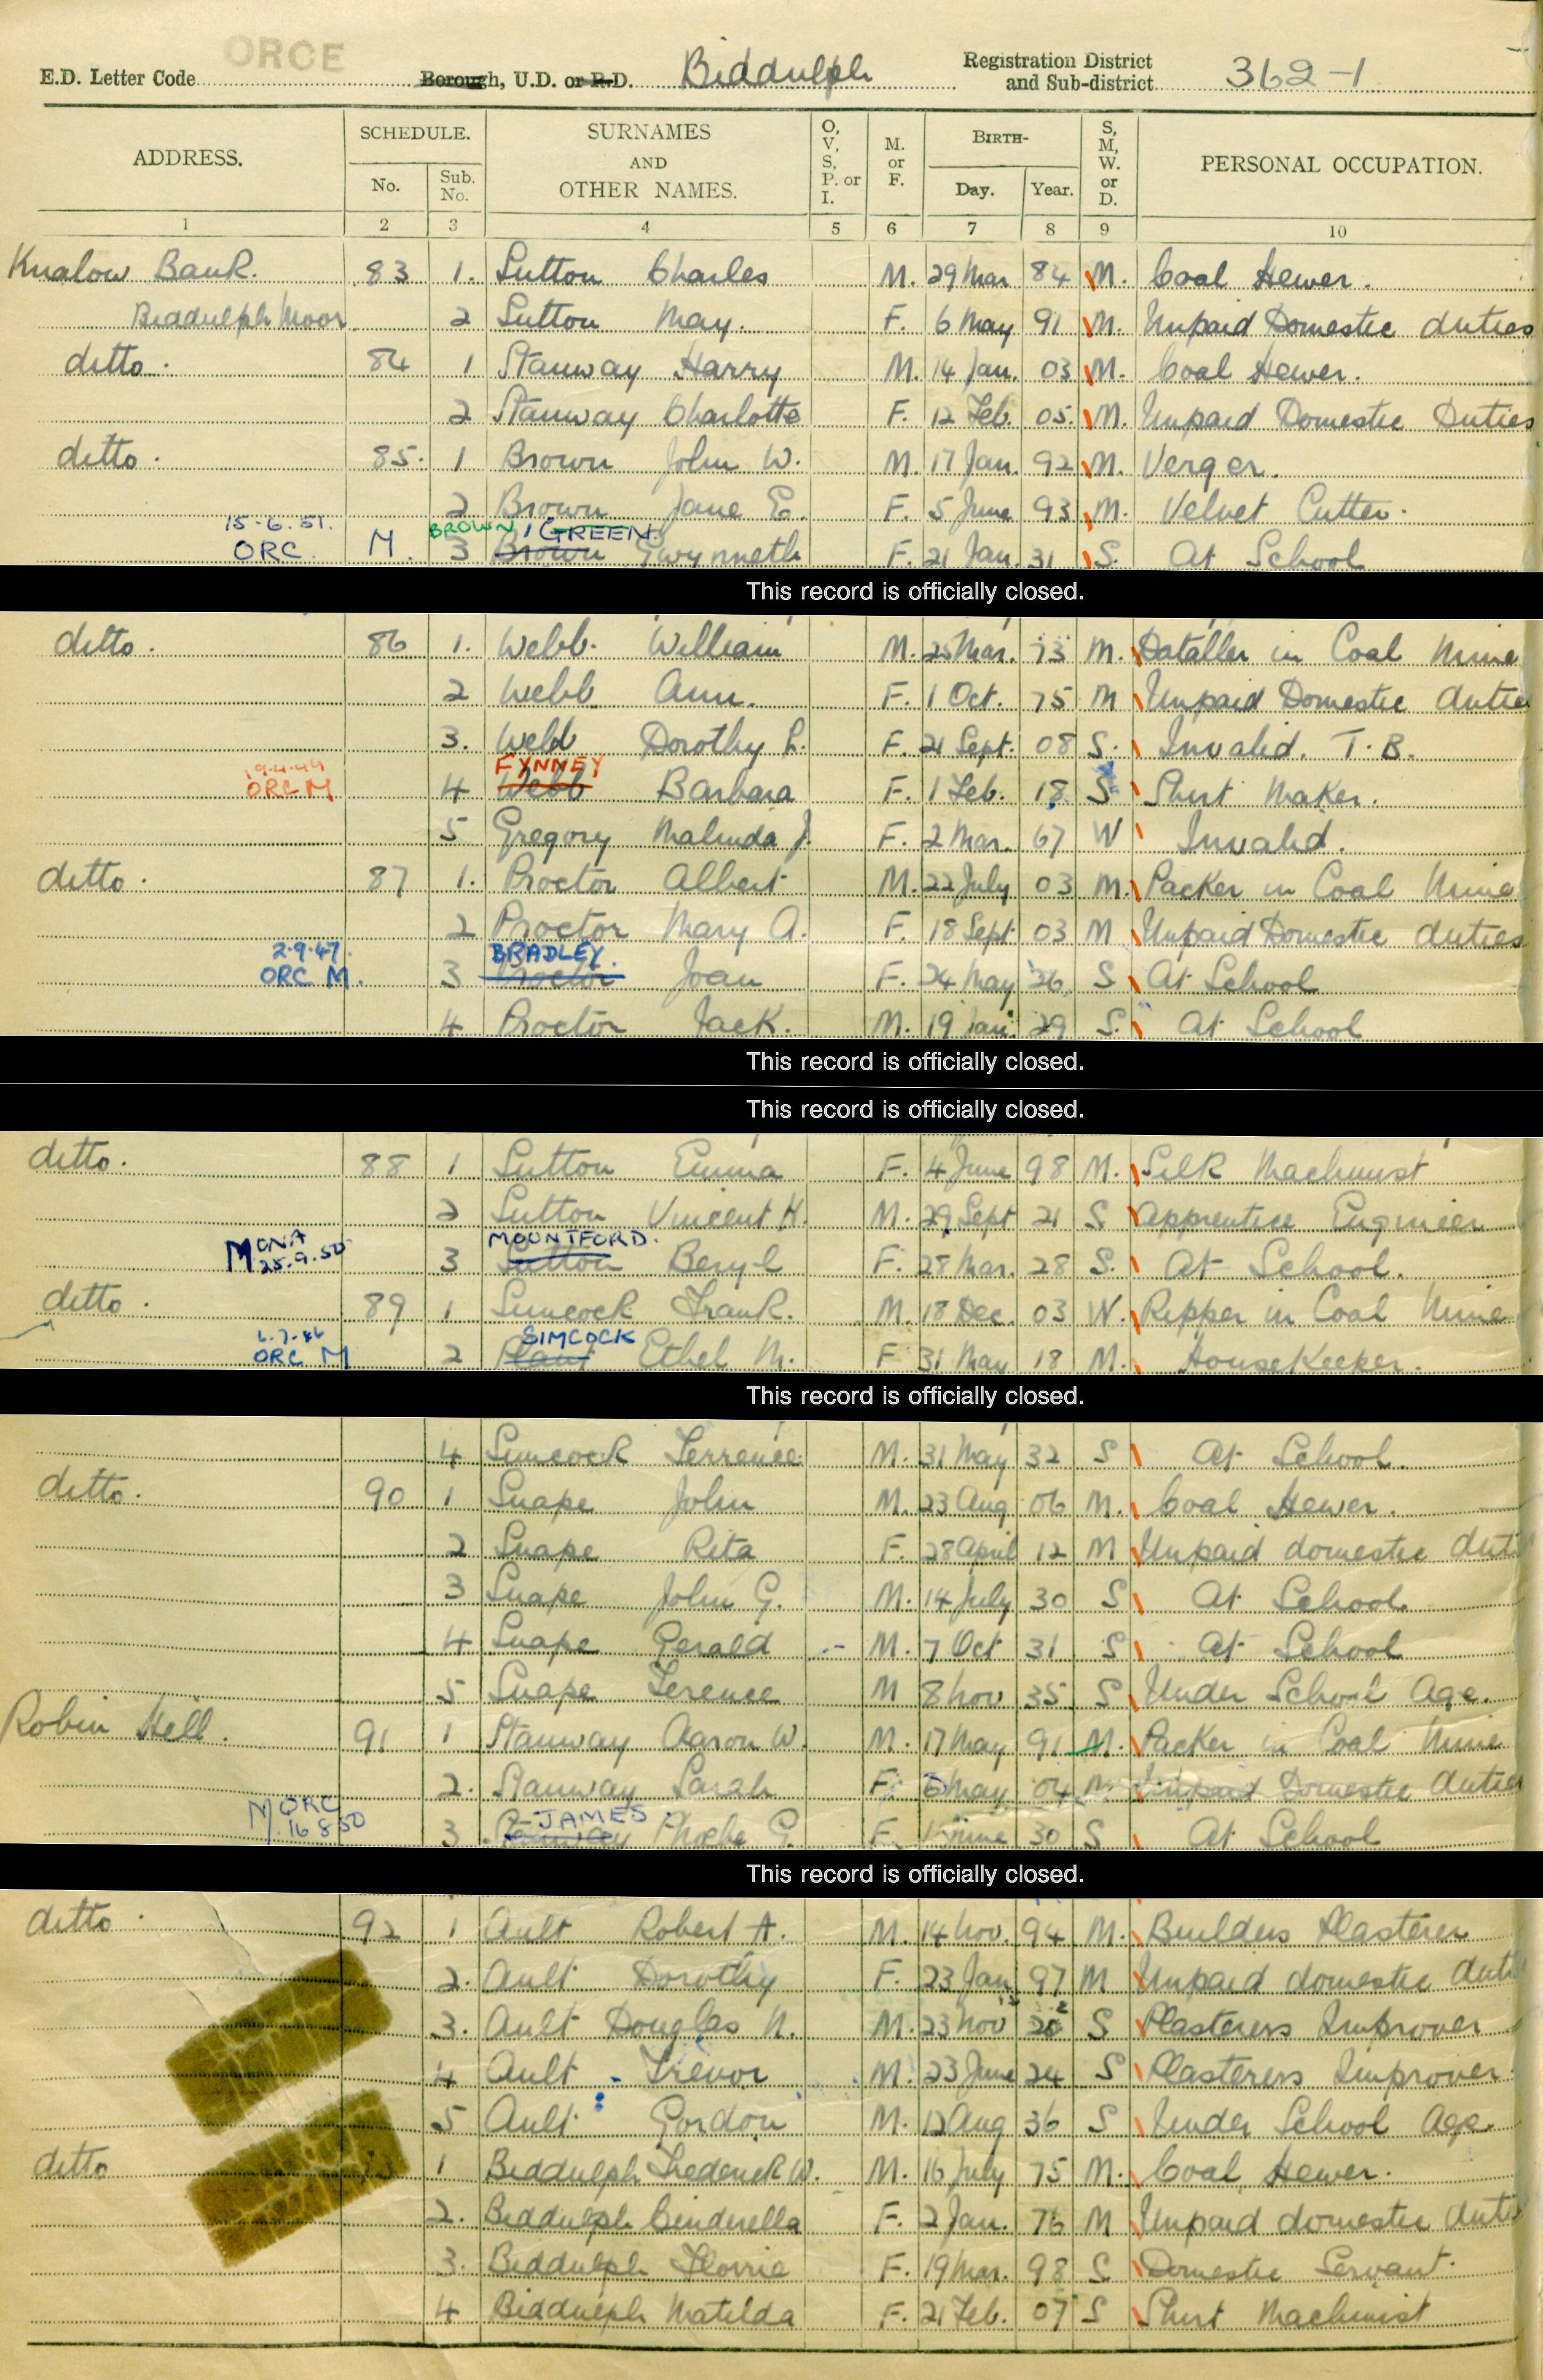 ORCE
E.D. Letter Code Borough, U.D. or R.D. Biddulph Registration District and Sub-district 362-1
ADDRESS. SCHEDULE. No. Sub. No. SURNAMES AND OTHER NAMES. O, V, S, P. or I. M. or F. BIRTH- Day. Year. S, M, W. or D. PERSONAL OCCUPATION.
1 2 3 4 5 6 7 8 9 10
Knalow Bank. 83 1. Sutton Charles M. 29 Mar 84 M. Coal Hewer.
Biddulph Moor 2 Sutton May. F. 6 May 91 M. Unpaid Domestic duties
ditto. 84 1 Stanway Harry M. 14 Jan. 03 M. Coal Hewer.
2 Stanway Charlotte F. 12 Feb. 05. M. Unpaid Domestic Duties
ditto. 85. 1 Brown John W. M. 17 Jan. 92 M. Verger.
2 Brown Jane E. F. 5 June 93 M. Velvet Cutter.
15-6.51. BROWN / GREEN.
ORC. M. 3 Brown Gwynneth F. 21 Jan. 31 S. At School
This record is officially closed.
ditto. 86 1. Webb. William M. 25 Mar. 73 M. Dataller in Coal Mine
2 Webb Ann. F. 1 Oct. 75 M Unpaid Domestic duties
3. Webb Dorothy L. F. 21 Sept. 08 S. Invalid. T.B.
19.4.44 FYNNEY
ORC M 4 Webb Barbara F. 1 Feb. 18 S Shirt Maker.
5 Gregory Malinda J. F. 2 Mar. 67 W Invalid.
ditto. 87 1. Proctor Albert M. 22 July 03 M. Packer in Coal Mine
2 Proctor Mary A. F. 18 Sept 03 M Unpaid Domestic duties
2.9.47. BRADLEY.
ORC M. 3 Proctor Joan F. 24 May 26 S At School
4 Proctor Jack. M. 19 Jan. 29 S. At School
This record is officially closed.
This record is officially closed.
ditto. 88 1 Sutton Emma F. 4 June 98 M. Silk Machinist
2 Sutton Vincent H. M. 29 Sept 21 S Apprentice Engineer
CNA MOUNTFORD.
M 25.9.50 3 Sutton Beryl F. 28 Mar. 28 S. At School.
ditto. 89 1 Simcock Frank. M. 18 Dec. 03 W. Ripper in Coal Mine
6.7.46 SIMCOCK
ORC M 2 Plant Ethel M. F 31 May 18 M. Housekeeper.
This record is officially closed.
4 Simcock Terrence. M. 31 May 32 S At School.
ditto. 90 1 Snape John M. 23 Aug 06 M. Coal Hewer.
2 Snape Rita F. 28 April 12 M Unpaid domestic duti
3 Snape John G. M. 14 July 30 S At School.
4 Snape Gerald M. 7 Oct 31 S At School
5 Snape Terence M 8 Nov 35 S Under School Age.
Robin Hill. 91 1 Stanway Aaron W. M. 17 May 91 M. Packer in Coal Mine
2. Stanway Sarah F. 6 May 04 M Unpaid Domestic duties
M ORC JAMES
16 8 50 3. Stanway Phoebe G. F. June 30 S At School
This record is officially closed.
ditto. 92 1 Ault Robert A. M. 14 Nov. 94 M. Builders Plasterer
2. Ault Dorothy F. 23 Jan 97 M Unpaid domestic duti
3. Ault Douglas N. M. 23 Nov 20 S Plasterers Improver
4 Ault Trevor M. 23 June 24 S Plasterers Improver
5 Ault Gordon M. 12 Aug 36 S Under School Age.
ditto 1 Biddulph Frederick W. M. 16 July 75 M. Coal Hewer.
2. Biddulph Cinderella F. 2 Jan. 76 M Unpaid domestic duti
3. Biddulph Florrie F. 19 Mar. 98 S. Domestic Servant.
4 Biddulph Matilda F. 21 Feb. 07 S Shirt Machinist